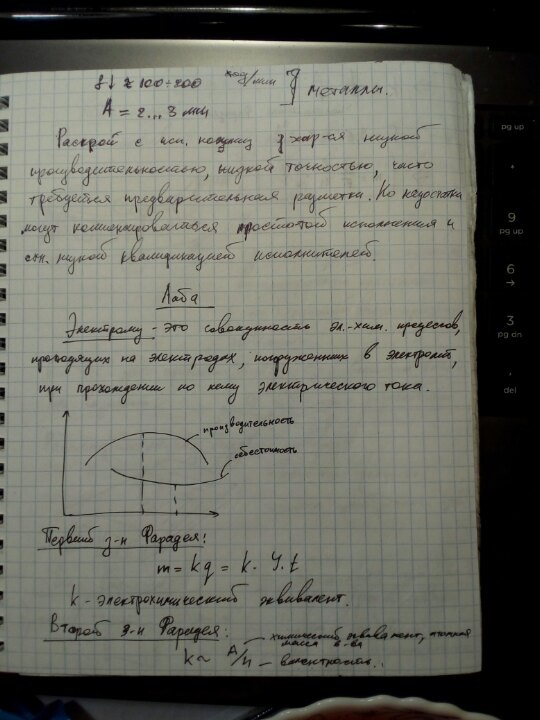 f↓ ≈ 100÷200 ход/мин } металлы.
A = 2...3 мм
Раскрой с исп. ножниц хар-ся низкой
производительностью, низкой точностью, часто
требуется предварительная разметка. Но недостатки
могут компенсироваться простотой исполнения и
низкой квалификацией исполнителей.
Лаба
- это совокупность эл.-хим. процессов,
проходящих на электродах, погруженных в электролит,
при прохождении по нему электрического тока.
производительность
себестоимость
Первый з-н Фарадея:
m = kq = k · I · t
k - электрохимический эквивалент.
Второй з-н Фарадея:
химический эквивалент, атомная
масса в-ва
k ~ A/n - валентность.
pg up
9
pg up
6
→
3
pg dn
.
del